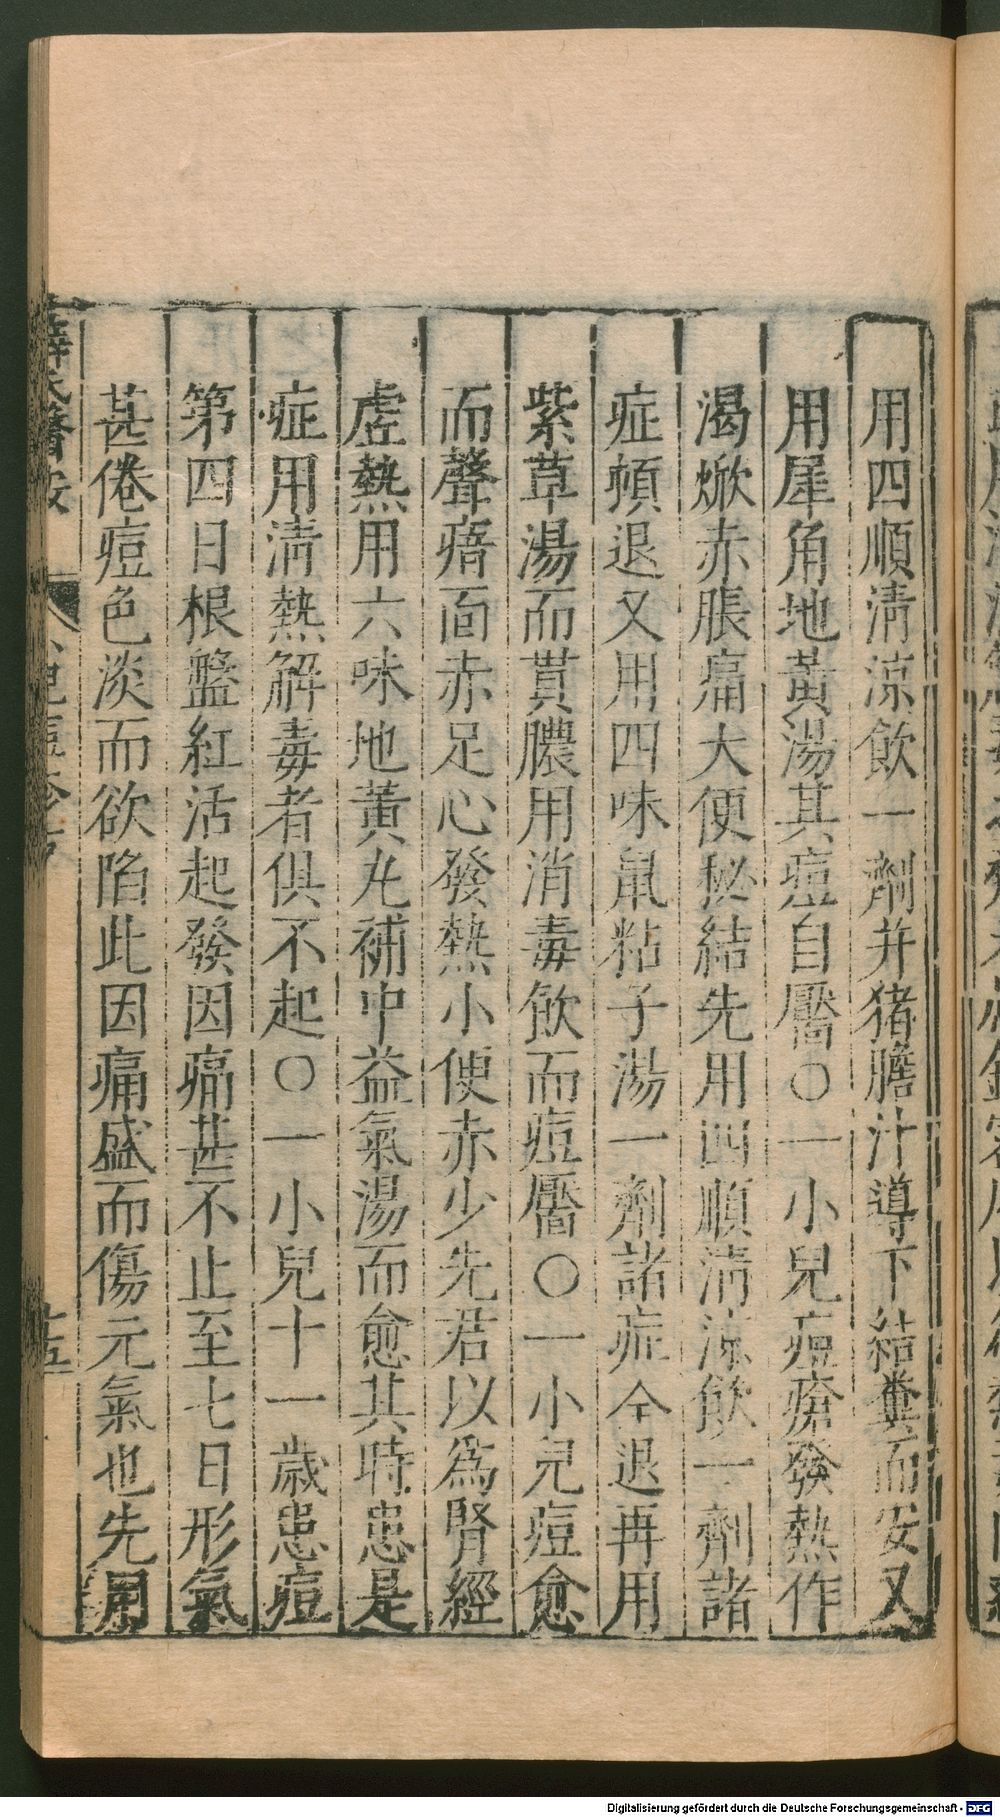 用四順清涼飲一劑并猪膽汁導下結糞而安又
用犀角地黃湯其痘自靨○一小兒痘瘡發熱作
渴焮赤脹痛大便秘結先用四順清涼飲一劑諸
症頓退又用四味鼠粘子湯一劑諸症仝退再用
紫草湯而貫膿用消毒飲而痘靨○一小兒痘愈
而聲瘖面赤足心發熱小便赤少先君以為腎經
虛熱用六味地黃丸補中益氣湯而愈其時患是
症用清熱解毒者俱不起○一小兒十一歲患痘
第四日根盤紅活起發因痛甚不止至七日形氣
甚倦痘色淡而欲陷此因痛盛而傷元氣也先用
薛氏醫按
十五
Digitalisierung gefördert durch die Deutsche Forschungsgemeinschaft - DFG